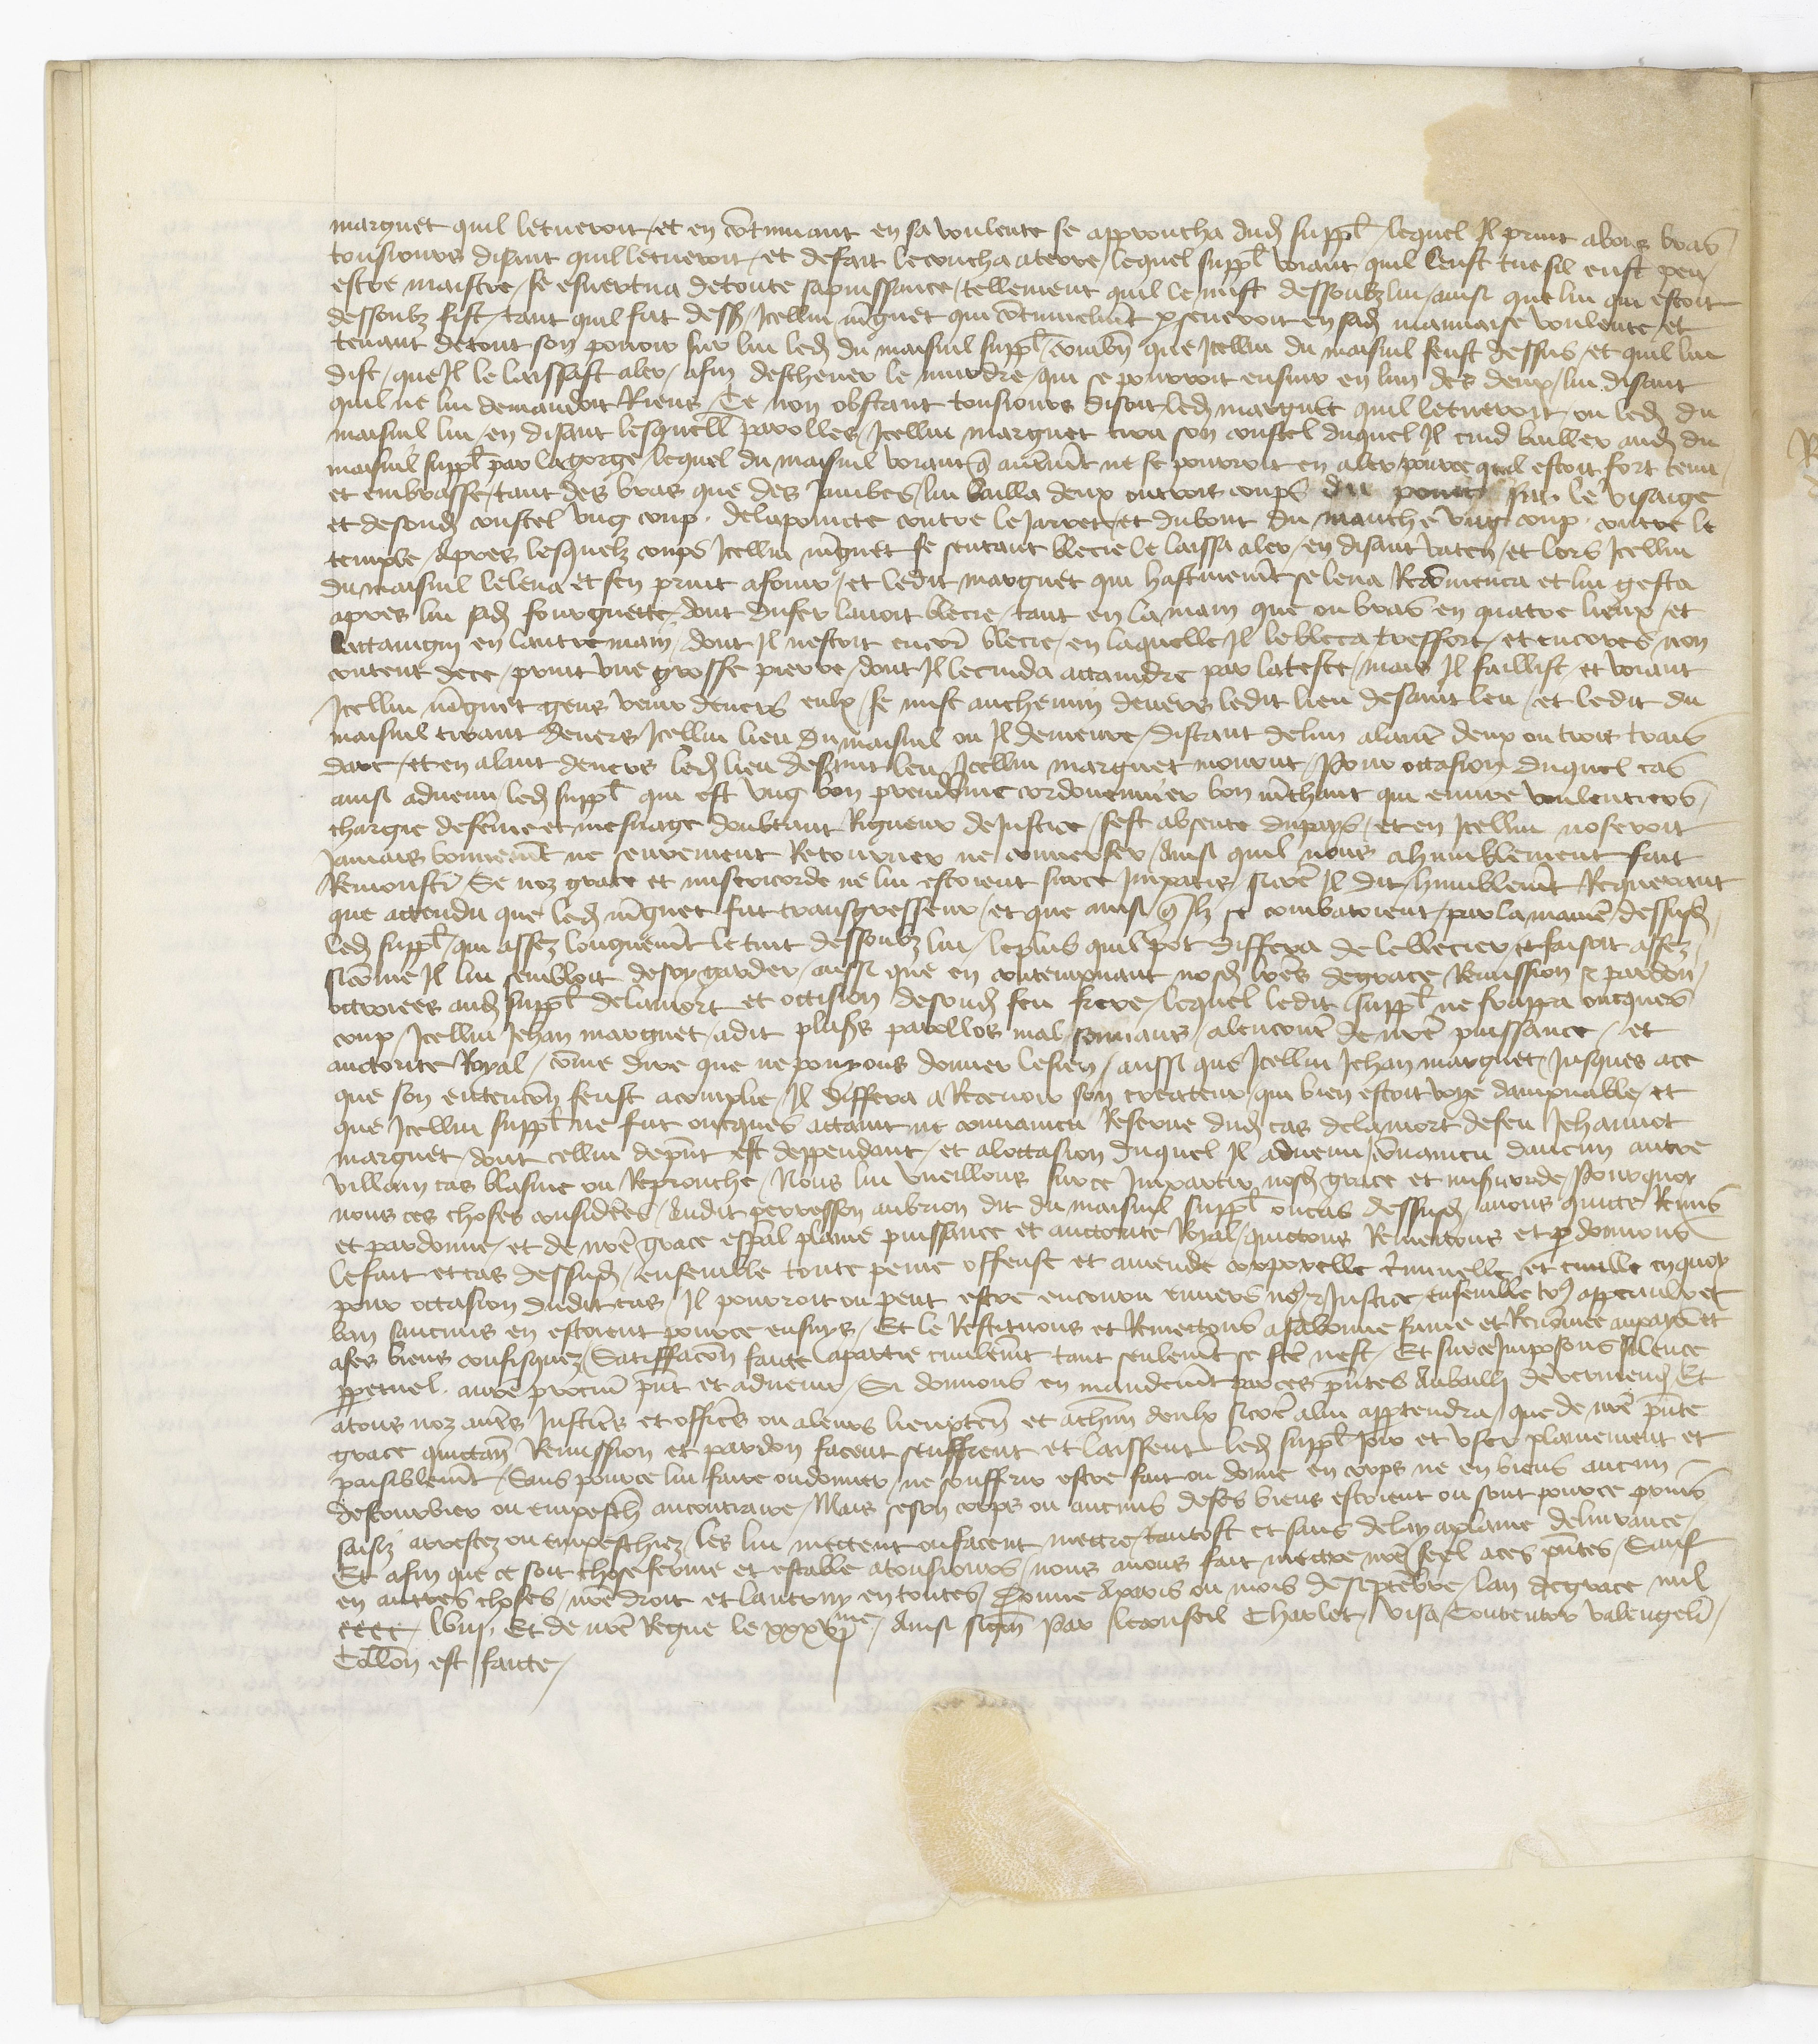 marguet quil letueroit / et en c̄tinuant en sa voulente se approucha dud suppl / lequel Il print abons bras
tousiours disant quil letueroit / et defait lecoucha aterre / lequel suppl voiant quil leust tue sil eust peu
estre maistre / se esuertua detoute sa puissance / tellement quil le mist dessoubz lui / ainsi que lui qui estoit
dessoubz fist / tant quil fut dess / Icellui m̄guet qui c̄tinuelm̄t perseueroit en sad mauuaise voulente / et
tenant detout son pouoir sur lui led du maisnil suppl / combn̄ que Icellui du maisnil feust dessus / et quil lui
dist / que Il le laissast aler / afin descheuer le murdre / qui se pourroit ensuir en lun des deux / lui disant
quil ne lui demandoit Riens / Ce non obstant tousiours disoit led marguet quil letueroit ou led du
maisnil lui / en disant lesquell parolles / Icellui marguet tira son coustel duquel Il cuid bailler aud du
maisnil suppl par lagorge / lequel du maisnil voiant q̄ autrem̄t ne se pouroit en aler / pource quil estoit fort tenu
et embrasse / tant des bras que des Jambes / lui bailla deux outrois coups du poing sur le visaige
et desond coustel vng coup delapointe contre le Jarret / et dubout du manche vng coup contre le
temple / Apres lesquelz coups Icellui m̄guet se sentant blecie le laissa aler / en disant vaten / et lors Icellui
du maisnil leleua et sen print afouir / et ledit marguet qui hastiuem̄t se leua Recom̄enca et lui gecta
apres lui sad fourguette / dont dufer lauoit blecie / tant en la main que ou bras en quatre lieux / et
lattaingny en lautre main / dont Il nestoit encor̄ blecie / en laquelle Il lebleca tresfort / et encores non
content dece / print vne grosse pierre / dont Il lecuida attaindre par lateste / mais Il faillist / et voiant
Icellui m̄guet gens venir deuers eulx / se mist auchemin deuers ledit lieu desaint leu / et ledit du
maisnil tirant deuers Icellui lieu du maisnil ou Il demeure / distant delun alautr̄ deux ou trois trais
darc / et en alant deuers led lieu desaint leu / Icellui marguet mourut / Pour occasion duquel cas
ainsi aduenu led suppl qui est vng bon preudōme cordouennier bon m̄chant qui euure voulentiers
chargie defem̄e et mesnage doubtant Rigueur deJustice / sest absente dupays / et en Icellui noseroit
Jamais bonnem̄t ne seurement Retourner ne conuerser / Ainsi quil nous ahumblement fait
Remonstr̄ / Se noz grace et misericorde ne lui estoient surce Imparties / sicōe Il dit humblem̄t Requerant
que attendu que led m̄guet fut transgresseur / et que ainsi q̄ Ilz se combatoient / par la manier̄ dessusd
led suppl / qui assez longuem̄t le tint dessoubz lui / leplus quil pot differa de leblecier / et faisoit assez
sicōme Il lui sembloit desoy garder / aussi que en contempnant nosd l̄res degrace Remission & pardon
octroiees aud suppl delamort et occision desond feu frere / lequel ledit suppl ne frappa oncques
coup / Icellui Jehan marguet / adit plus̄s parolles mal sonnans / alencontr̄ de nr̄e puissance / et
auctorite Royal / cōme dire que ne pouyons donner lesien / aussi que Icellui Jehan marguet Jusques ace
que son entencōn feust acomplie / Il differa a Receuoir son createur / qui bien estoit voye dampnable / et
que Icellui suppl ne fut oncques attaint ne conuaincu Reserue dud cas delamort defeu Jehannot
marguet / dont cellui dep̄nt est deppendant / et aloccasion duquel Il aduenu / conuaincu daucun autre
villain cas blasme ou Reprouche / Nous lui vueillons surce Impartir nosd grace et mis̄icorde / Pourquoy
nous ces choses considerees / Audit perresson aubrion dit du maisnil suppl oucas dessusd / auons quicte Remis
et pardonne / et de nr̄e grace esp̄al plaine puissance et auctorite Royal / quictons Remettons et pardonnons
lefait et cas dessusd / ensemble toute peine offense et amende corporelle cr̄iminelle et ciuille enquoy
pour occasion dudit cas / Il pourroit ou peut estre encouru enuers nous & Justice / ensemble tous appeaulx et
ban saucuns en estoient pource ensuys / Et le Restituons et Remettons asabonne fame et Renōmee aupays et
ases biens confisquez / Satisffacōn faicte apartie ciuilem̄t tant seulem̄t se fc̄e nest / Et surce Imposons silence
ꝑpetuel au nr̄e procur̄ p̄nt et aduenir / Si donnons en mandem̄t par ces p̄ntes Aubailli de vermend / Et
atous noz autr̄s Justic̄rs et offic̄rs ou aleurs lieuxten̄ et achūn deulx sicōe alui appartendra / que de nr̄e p̄nte
grace quictan̄ Remission et pardon facent seuffrent et laissent led suppl Joir et vser plainement et
paisiblem̄t / Sans pource lui faire oudonner / ne souffrir estre fait ou donne en corps ne en biens aucun
destourbier ou empesch̄ aucontraire / Mais se son corps ou aucuns deses biens estoient ou sont pource prins
saisiz arrestez ou empeschiez / les lui mettent oufacent mettre / tantost et sans delay aplaine deliurance
Et afin que ce soit chose ferme et estable atousiours / nous auons fait mettre nr̄e seel aces p̄ntes / Sauf
en autres choses / nr̄e droit et lautruy en toutes / Donne Aparis ou mois de septembre / lan degrace mil
cccc lviij / Et de nr̄e Regne le xxxvjme / Ainsi sign̄ Par leconseil Charlet / visa Contentor valengelīer
Collōn est faicte